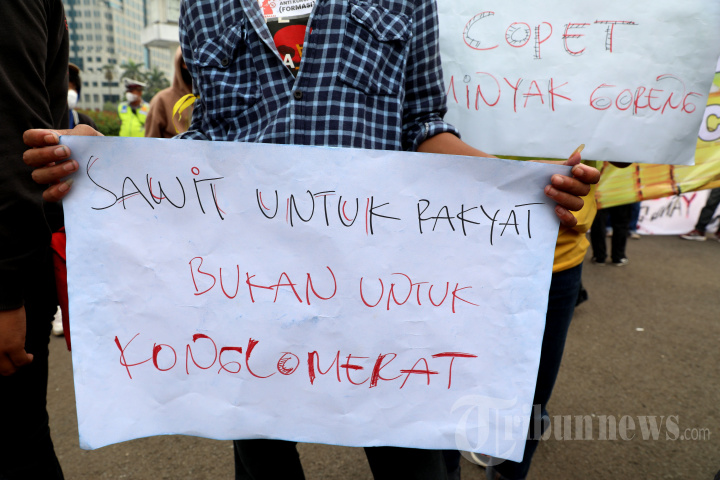 (FORMASI)
COPET
MINYAK GORENG
SAWIT UNTUK RAKYAT
BUKAN UNTUK
KONGLOMERAT
Tribunnews.com